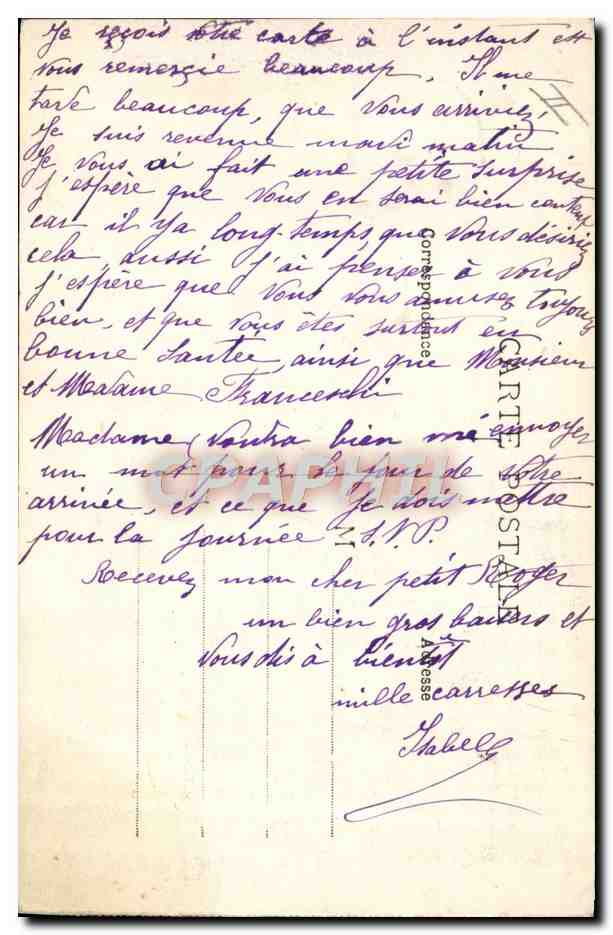 Je reçois votre carte à l'instant et
vous remerçie beaucoup, Il me
tarde beaucoup, que vous arriviez,
Je suis revenue mardi matin
Je vous ai fait une petite surprise
j'espère que vous en serai bien content
car il ya long-temps, que vous désiriez
cela, aussi j'ai penser à vous
j'espère que vous vous amusez toujours
bien, et que vous êtes surtout en
bonne santée, ainsi que Monsieur
et Madame Franceschi
Madame, voudra bien m'envoyer
un mot pour le jour de votre
arrivée, et ce que je dois mettre
pour la journée S.V.P.
Recevez mon cher petit Roger
un bien gros baisers et
vous dis à bientôt
mille carresses
Isabelle
II
CARTE POSTALE
Correspondance
Adresse
M
CPAPHIL